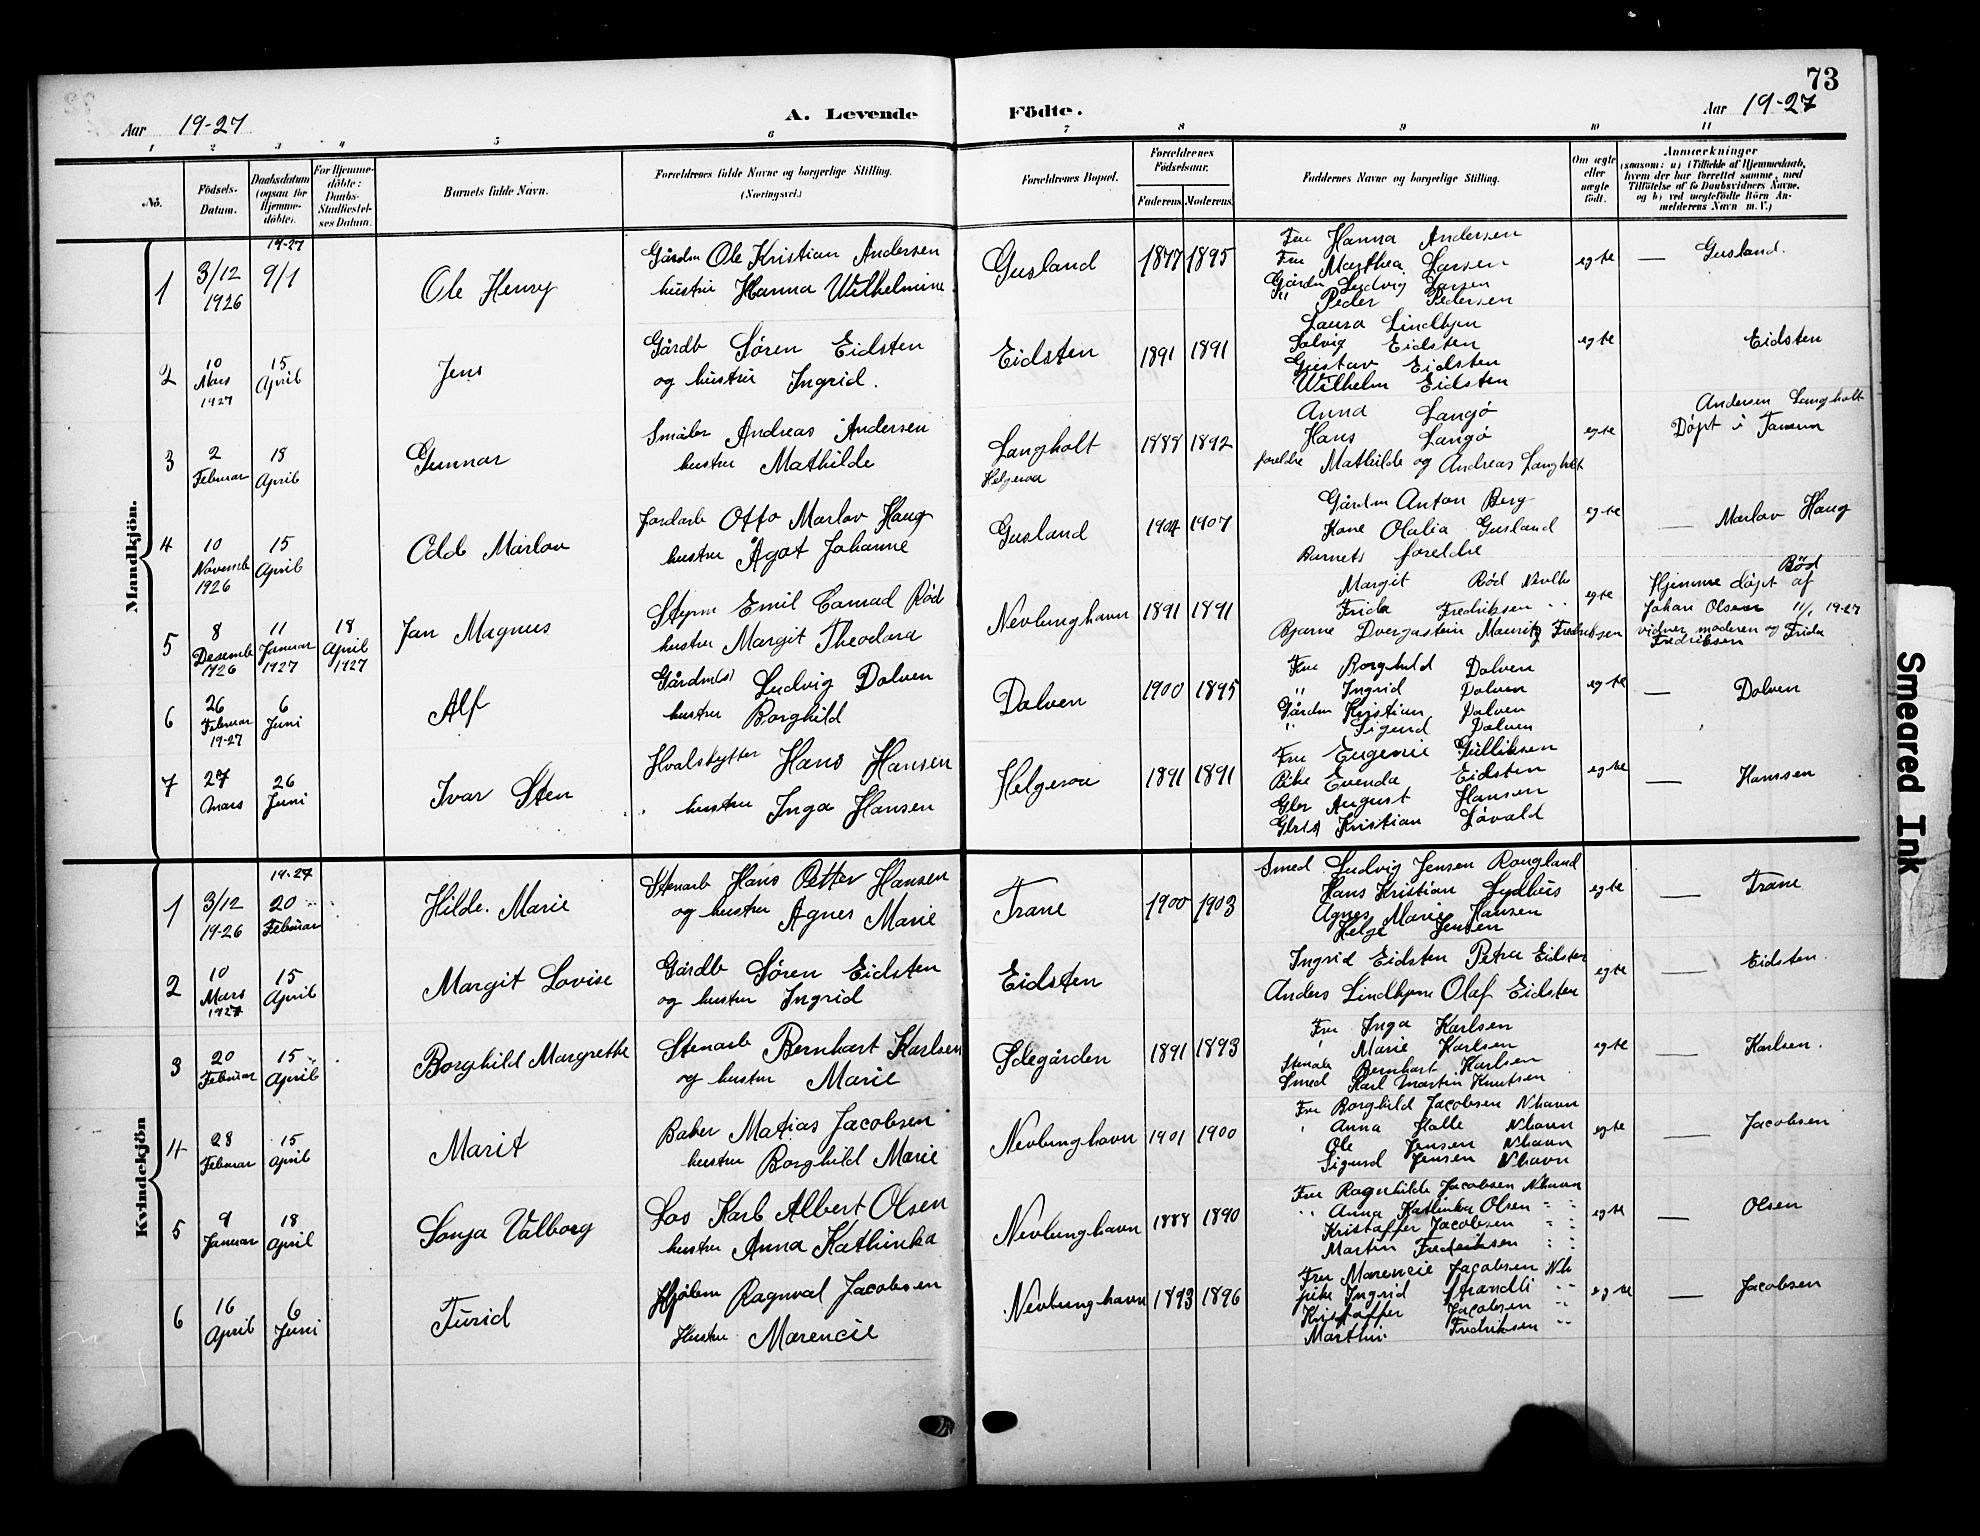 73
Aar 19-27
A. Levende Födte.
Aar 19-27
1 2 3 4 5 6 7 8 9 10 11
No.
Födsels-Datum.
Daabsdatum (ogsaa for Hjemme-döbte).
For Hjemme-döbte: Daabs-Stadfæstelses Datum.
Barnets fulde Navn.
Forældrenes fulde Navne og borgerlige Stilling. (Næringsvei.)
Forældrenes Bopæl.
Forældrenes Födselsaar.
Faderens Moderens
Faddernes Navne og borgerlige Stilling.
Om ægte eller uægte födt.
Anmærkninger
(saasom: a) i Tilfælde af Hjemmedaab, hvem der har forrettet samme, med Tilföielse af to Daabsvidners Navne, og b) ved uægtefödte Börn Anmelderens Navn m. V.)
Mandkjön.
1 3/12 1926 19-27 9/1 Ole Henry
Gårdm Ole Kristian Andersen
hustru Hanna Wilhelmine
Gusland 1877 1895
Fru Hanna Andersen
Fru Marthea Larsen
Gårdm Ludvig Larsen
" Peder Pedersen
egte — Gusland.
2 10 Mars 1927 15 April Jens
Gårdb Søren Eidsten
og hustru Ingrid.
Eidsten 1891 1891
Laura Lindhjem
Solvig Eidsten
Gustav Eidsten
Wilhelm Eidsten
egte Eidsten
3 2 Februar 18 April Gunnar
Småbr Andreas Andersen
hustru Mathilde
Langholt
Helgeroa
1888 1892
Anna Langø
Hans Langø
foreldre Mathilde og Andreas Langholt
egte Andersen Langholt
Døpt i Tanum
4 10 Novemb 1926 15 April Odd Marlov
Jordarb Otto Marlov Haug
hustru Ågot Johanne
Gusland 1904 1907
Gårdm Anton Berg
Kone Olalia Gusland
Barnets foreldre
egte — Marlov Haug
5 8 Desemb 1926 11 Januar 1927 18 April 1927 Jan Magnus
Styrm Emil Conrad Rød
hustru Margit Theodora
Nevlunghavn 1891 1891
Margit Rød Nevlh
Frida Fredriksen "
Bjarne Dvergastein Mauritz Fredriksen
egte Rød
Hjemme døpt af
Johan Olsen 11/1 19-27
vidner moderen og Frida
Fredriksen
6 26 Februar 19-27 6 Juni Alf
Gårdm(s) Ludvig Dolven
hustru Borghild
Dolven 1900 1895
Fru Borghild Dolven
" Ingrid Dolven
Gårdm Kristian Dolven
" Sigurd Dolven
egte — Dolven
7 27 Mars 26 Juni Ivar Sten
Hvalskytter Hans Hansen
hustru Inga Hansen
Helgeroa 1891 1891
Fru Eugenie Gulliksen
Pike Evenda Eidsten
August Hansen
Kristian Løvald
egte — Hanssen
Kvindekjön
1 3/12 19-26 19-27 20 Februar Hilde. Marie
Stenarb Hans Petter Hansen
og hustru Agnes Marie
Trane 1900 1903
Smed Ludvig Jensen Rongland
Hans Kristian Lydhus
Agnes Marie Hansen
Helge Jensen
egte — Trane
2 10 Mars 1927 15 April Margit Lovise
Gårdb Søren Eidsten
og hustru Ingrid
Eidsten
Ingrid Eidsten Petra Eidsten
Anders Lindhjem Olaf Eidsten
egte — Eidsten.
3 20 Februar 15 April Borghild Margrethe
Stenarb Bernhart Karlsen
og hustru Marie
Ødegården 1891 1893
Fru Inga Karlsen
" Marie Karlsen
Stenab Bernhart Karlsen
Smed Karl Martin Knutsen
egte — Karlsen.
4 28 Februar 15 April Marit
Baker Matias Jacobsen
hustru Borghild Marie
Nevlunghavn 1901 1900
Fru Borghild Jacobsen N.havn
" Anna Halle N.havn
Ole Jensen N.havn
Sigurd Jensen N.havn
egte — Jacobsen
5 9 Januar 18 April Sonja Valborg
Los Karl Albert Olsen
hustru Anna Kathinka
Nevlunghavn 1888 1890
Fru Ragnhilde Jacobsen N.havn
" Anna Kathinka Olsen " "
Kristaffer Jacobsen " "
Martin Fredriksen " "
egte — Olsen
6 16 April 6 Juni Turid
Ragnval Jacobsen
Hustru Marencie
Nevlunghavn 1893 1896
Fru Marencie Jacobsen N.h
pike Ingrid Strandli "
Kristaffer Jacobsen "
Marthin Fredriksen "
egte — Jacobsen
Smeared Ink